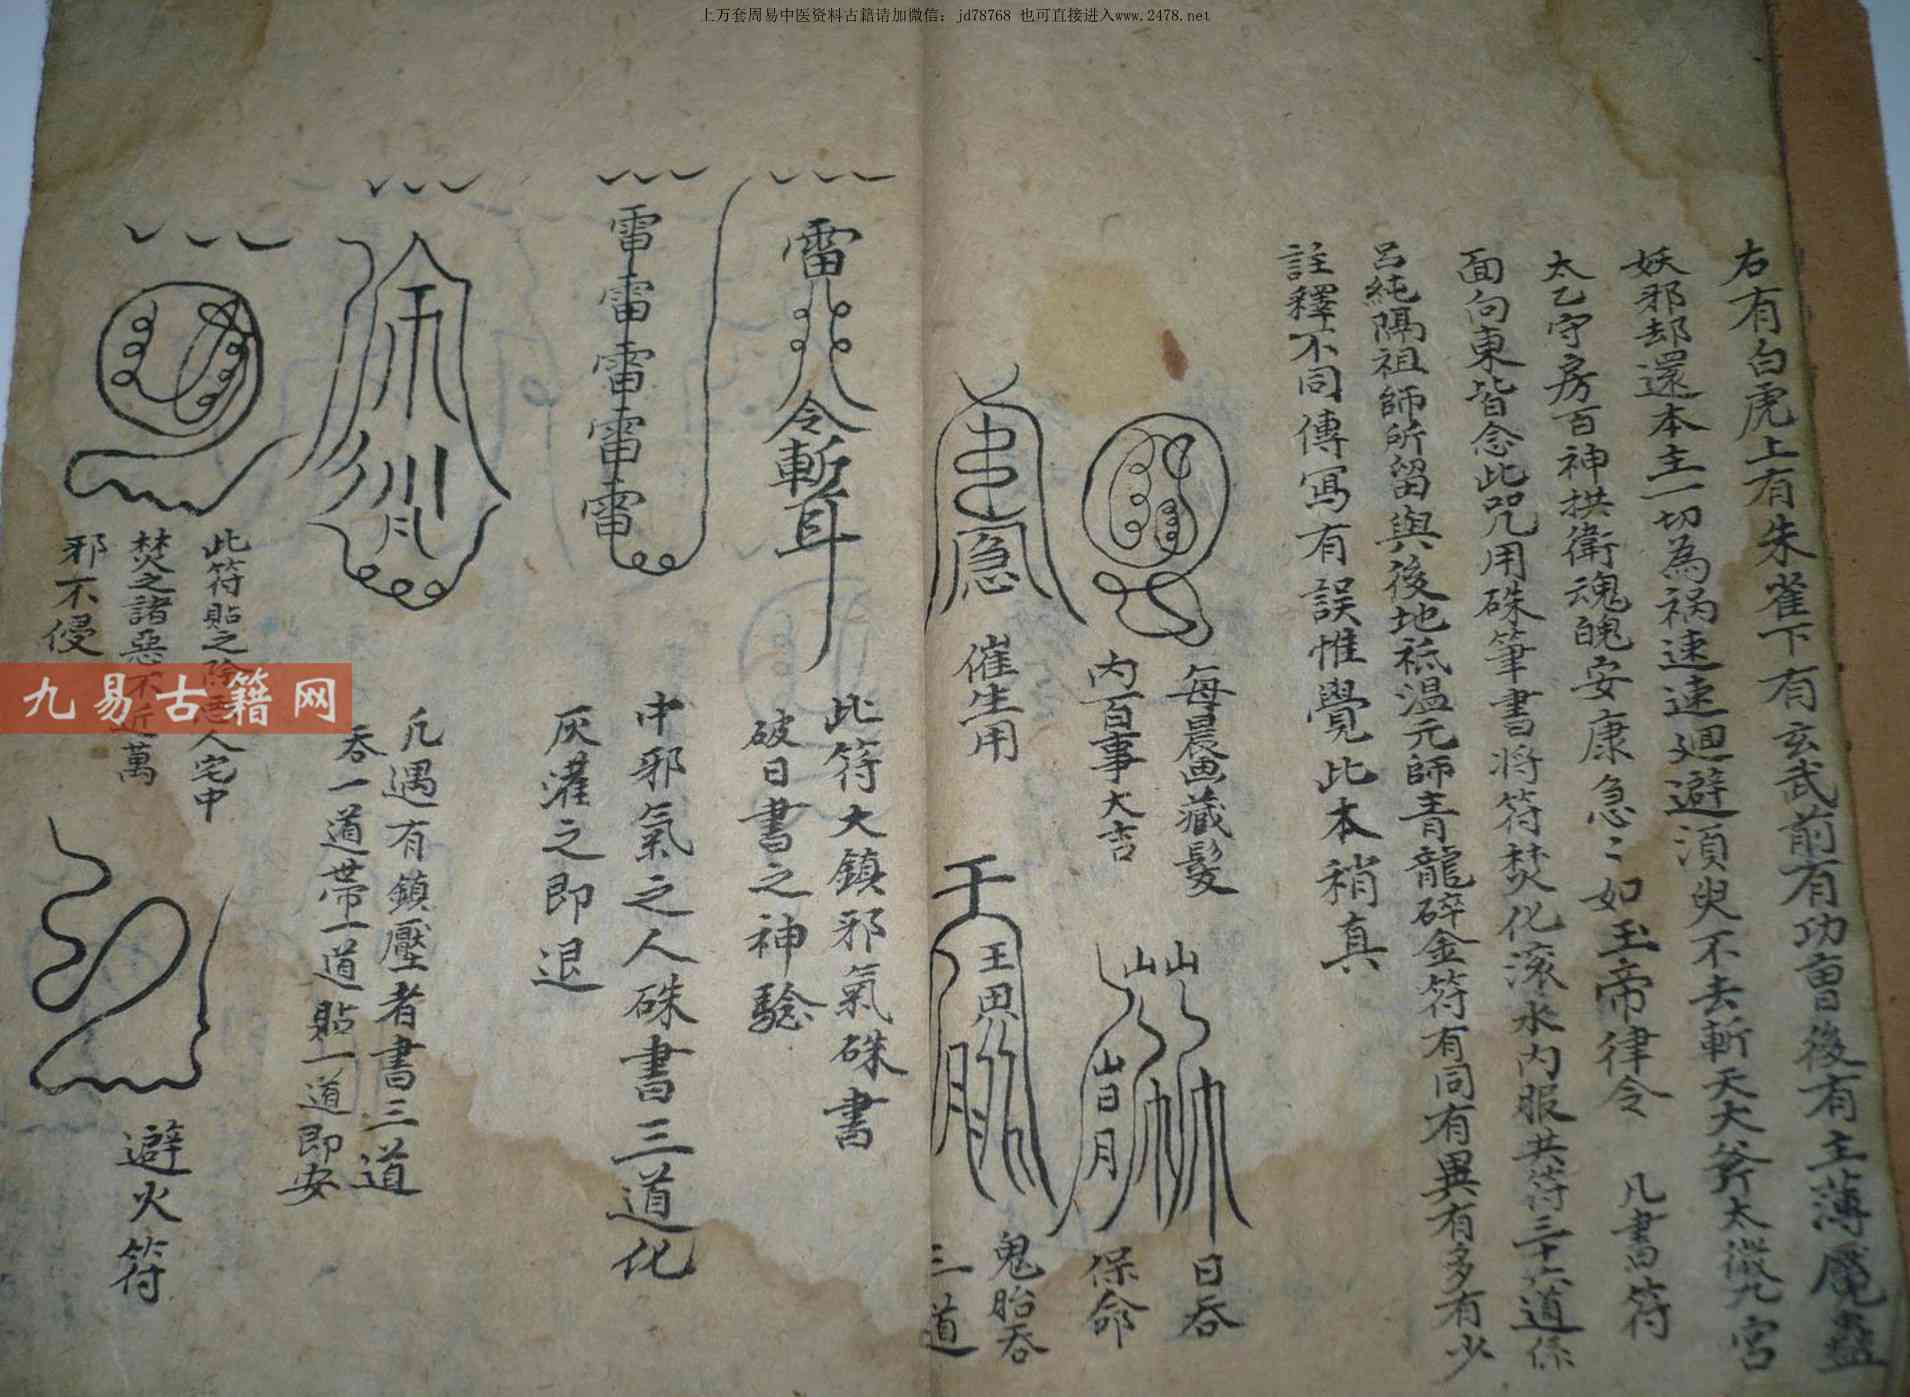 上万套周易中医资料古籍请加微信：jd78768 也可直接进入www.2478.net
右有白虎上有朱雀下有玄武前有功曹後有主薄魘蠱
妖邪却還本主一切為祸速速廻避湏臾不去斬天大斧太微九宮
太乙守房百神拱衛魂魄安康急〻如玉帝律令 凡書符
面向東皆念此咒用硃筆書将符焚化滚水内服共符三十六道係
呂純陽祖師所留與後地祗温元帥青龍碎金符有同有異有多有少
註釋不同傳寫有誤惟覺此本稍真
每晨画藏髮
内百事大吉
日吞
保命
催生用
鬼胎吞
三道
雷
令斬耳
此符大鎮邪氣硃書
破日書之神驗
雷雷雷雷雷
中邪氣之人硃書三道化
灰灌之即退
凡遇有鎮壓者書三道
吞一道带一道貼一道即安
此符貼之除惡人宅中
焚之諸惡不近萬
邪不侵
避火符
九易古籍网